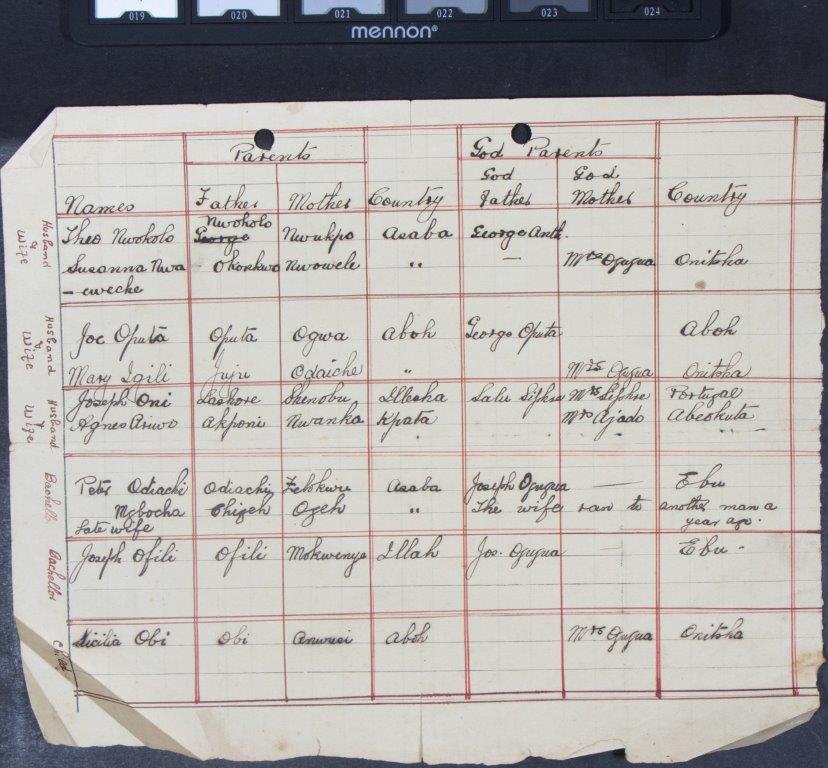 019 020 021 022 023 024
mennon®
Parents God Parents
God God
Names Father Mother Country Father Mother Country
Husband & Wife
Nwokolo
Theo Nwokolo George Nwukpo Asaba George Anth.
Susanna Nwa Okonkwo Nwowele " — Mrs Ogugua Onitsha
- eweche
Husband & Wife
Joe Oputa Oputa Ogwa Aboh George Oputa Aboh
Mary Igili Juju Odaiche " Mrs Ogugua Onitsha
Husband & Wife
Joseph Oni Lashore Shenobu Illesha Salu Mrs Portugal
Agnes Ariwo Akponi Nwanka Kpata Mrs Ajado Abeokuta
Bachellor
Peter Odiachi Odiachi Asaba Joseph Ogugua — Ebu
Mgbocha Chizeh Ozeh " The wife ran to another man a
Late wife year ago.
Bachellor
Joseph Ofili Ofili Mokwenye Illah Jos. Ogugua — Ebu -
Child
Sicilia Obi Obi Anwusi Aboh Mrs Ogugua Onitsha